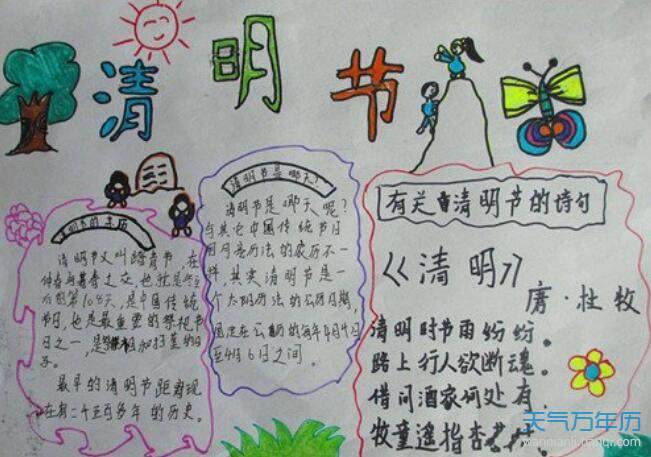 清明节
清明节的来历
清明节又叫踏青节，在
仲春与暮春之交，也就是冬至
后的第108天，是中国传统
节日，也是最重要的祭祀节
日之一，是祭祖和扫墓的日
子。
最早的清明节距离现
在有二千五百多年的历史。
清明节是哪天？
清明节是哪天呢？
与其它中国传统节日
用月亮历法的农历不一
样，其实清明节是一
个太阳历法的公历日期，
固定在公历的每年4月4日
至4月6日之间。
有关清明节的诗句
《清明》
唐·杜牧
清明时节雨纷纷。
路上行人欲断魂。
借问酒家何处有.
牧童遥指杏花村。
天气万年历
wannianli.tianqi.com